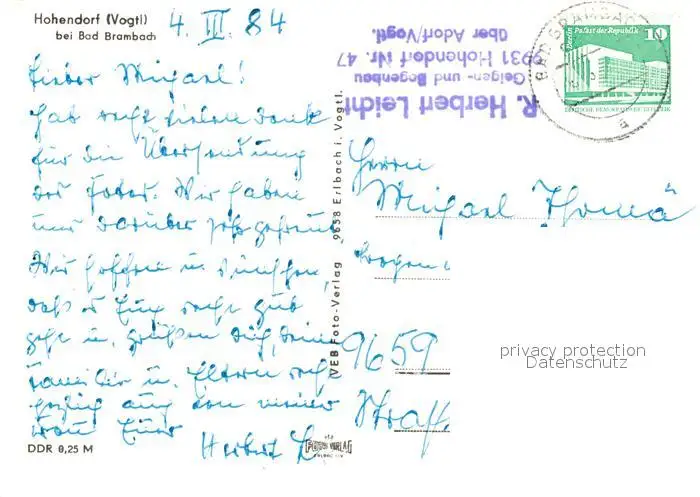 Hohendorf (Vogtl)
bei Bad Brambach
4. III. 84
Lieber Michael!
Hab recht vielen Dank
für die Übersendung
der Fotos. Wir haben
uns darüber sehr gefreut
Wir hoffen u. wünschen,
daß es Euch recht gut
geht u. grüßen Dich, Deine
Familie u. Eltern recht
herzlich auch von meiner
Frau Euer
Herbert L.
DDR 0,25 M
VEB Foto-Verlag 9658 Erlbach i. Vogtl.
FOTO-VERLAG
ERLBACH i.V.
R. Herbert Leicht
Geigen- und Bogenbau
9931 Hohendorf Nr. 47
über Adorf/Vogtl.
BAD BRAMBACH
a
Berlin Palast der Republik
10
DEUTSCHE DEMOKRATISCHE REPUBLIK
Herrn
Michael Thomä
Bogen
9659
Straß
privacy protection
Datenschutz